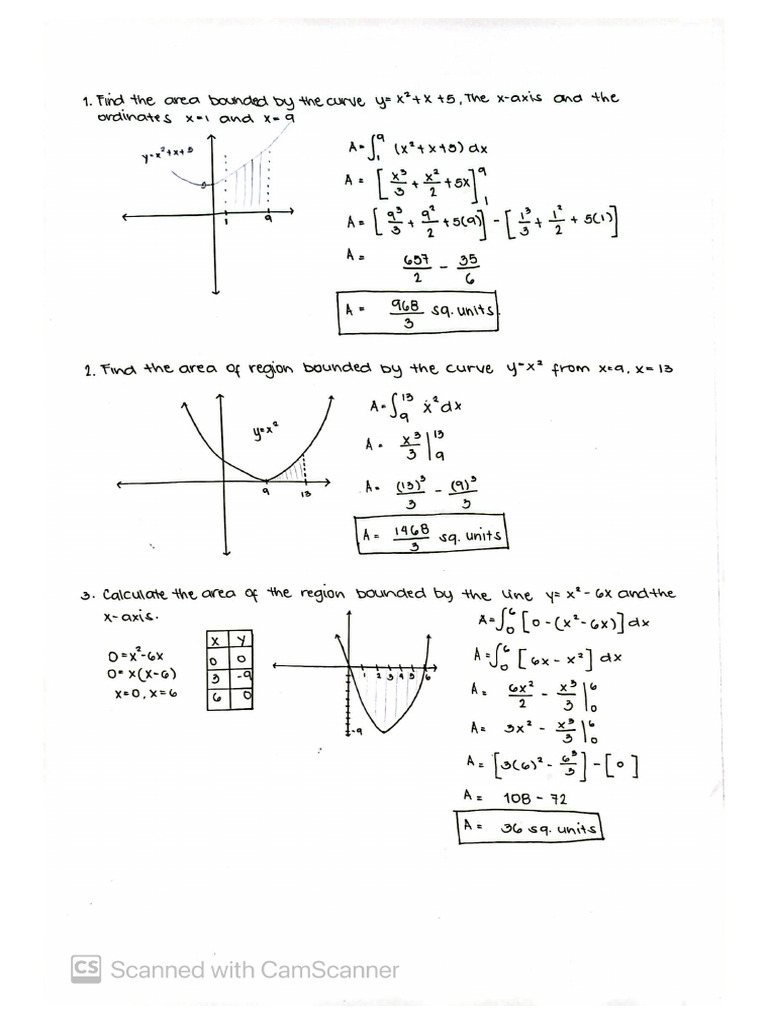 1. Find the area bounded by the curve y= x²+x+5, The x-axis and the
ordinates x=1 and x= 9
y=x²+x+5
5
1 9
A=∫₁⁹ (x²+x+5) dx
A = [x³/3 + x²/2 + 5x]₁⁹
A= [9³/3 + 9²/2 + 5(9)] - [1³/3 + 1²/2 + 5(1)]
A= 657/2 - 35/6
A = 968/3 sq. units
2. Find the area of region bounded by the curve y=x² from x=9, x= 13
y=x²
9 13
A=∫₉¹³ x²dx
A= x³/3 |₉¹³
A= (13)³/3 - (9)³/3
A= 1468/3 sq. units
3. Calculate the area of the region bounded by the line y= x²-6x and the
x-axis.
0=x²-6x
0= x(x-6)
x=0, x=6
x y
0 0
3 -9
6 0
1 2 3 4 5 6
-9
A=∫₀⁶ [0-(x²-6x)] dx
A=∫₀⁶ [6x-x²] dx
A= 6x²/2 - x³/3 |₀⁶
A= 3x² - x³/3 |₀⁶
A= [3(6)² - 6³/3] - [0]
A= 108 - 72
A= 36 sq. units
CS Scanned with CamScanner